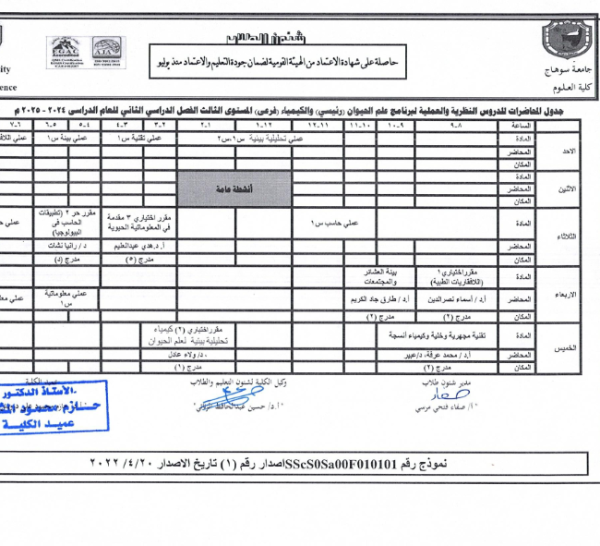 شئون الطلاب
حاصلة على شهادة الاعتماد من الهيئة القومية لضمان جودة التعليم والاعتماد منذ يوليو
جامعة سوهاج
كلية العلوم
جدول المحاضرات للدروس النظرية والعملية لبرنامج علم الحيوان (رئيسي) والكيمياء (فرعى) المستوى الثالث الفصل الدراسي الثاني للعام الدراسى ٢٠٢٤ - ٢٠٢٥م
الساعة ٨-٩ ٩-١٠ ١٠-١١ ١١-١٢ ١٢-١ ١-٢ ٢-٣ ٣-٤ ٤-٥ ٥-٦ ٦-٧
الاحد
المادة عملي تحليلية بيئية س١،س٢ عملي تقنية س١ عملي بيئة س١
المحاضر
المكان
الاثنين
المادة
المحاضر
المكان
أنشطة عامة
الثلاثاء
المادة عملي حاسب س١ مقرر اختياري ٣ مقدمة في المعلوماتية الحيوية مقرر حر ٢ (تطبيقات الحاسب فى البيولوجيا)
المحاضر أ.د.هدي عبدالعليم د/ رانيا نشات
المكان مدرج (٥) مدرج (د)
الاربعاء
المادة مقرر اختياري١ (اللافقاريات الطبية) بيئة العشائر والمجتمعات
المحاضر أ.د/ أسماء نصرالدين أ.د/ طارق جاد الكريم عملي معلوماتية س١
المكان مدرج (٢) مدرج (٢)
الخميس
المادة تقنية مجهرية وخلية وكيمياء أنسجة مقرر اختياري (٢) كيمياء تحليلية بيئية لعلم الحيوان
المحاضر أ.د/ محمد عرفة، د/عبير د/ ولاء عادل
المكان مدرج (٢) مدرج (١)
مدير شئون طلاب
أ/ صفاء فتحي مرسي
وكيل الكلية لشئون التعليم والطلاب
أ.د/ حسين عبدالحافظ
الأستاذ الدكتور
حازم محمود
عميد الكلية
نموذج رقم SScS0Sa00F010101اصدار رقم (١) تاريخ الاصدار ٢٠٢٢/٤/٢٠